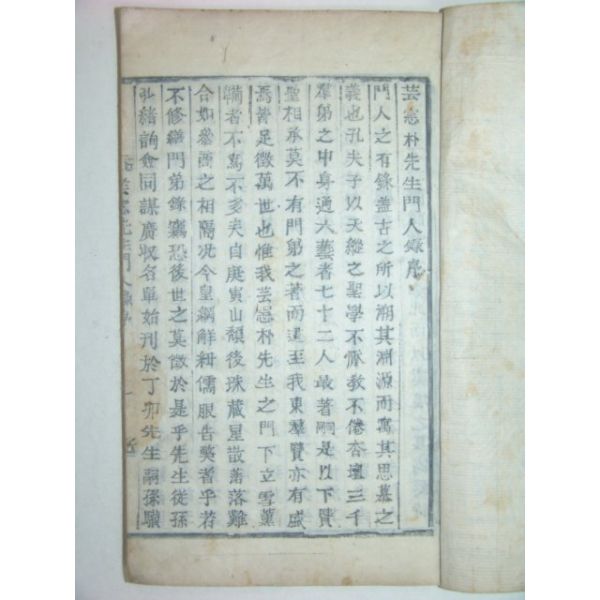 芸窓朴先生門人錄序
門人之有錄盖古之所以溯其淵源而寓其思慕之
義也孔夫子以天縱之聖學不厭敎不倦杏壇三千
羣弟之中身通六藝者七十二人最著焉是以下賢
聖相承莫不有門弟之著而逮至我東羣賢亦有盛
焉皆足徵萬世也惟我芸窓朴先生之門下立雪葉
備者不爲不多夫自庭寅山頹後珠藏星散落落難
合如參商之相隔况今皇綱解紐儒服告弊者乎若
不修繕門弟錄竊恐後世之莫徵於是乎先生從孫
弘緖詢僉同謀廣收名單始刊於丁卯先生嗣孫驥
芸窓先生門人錄序